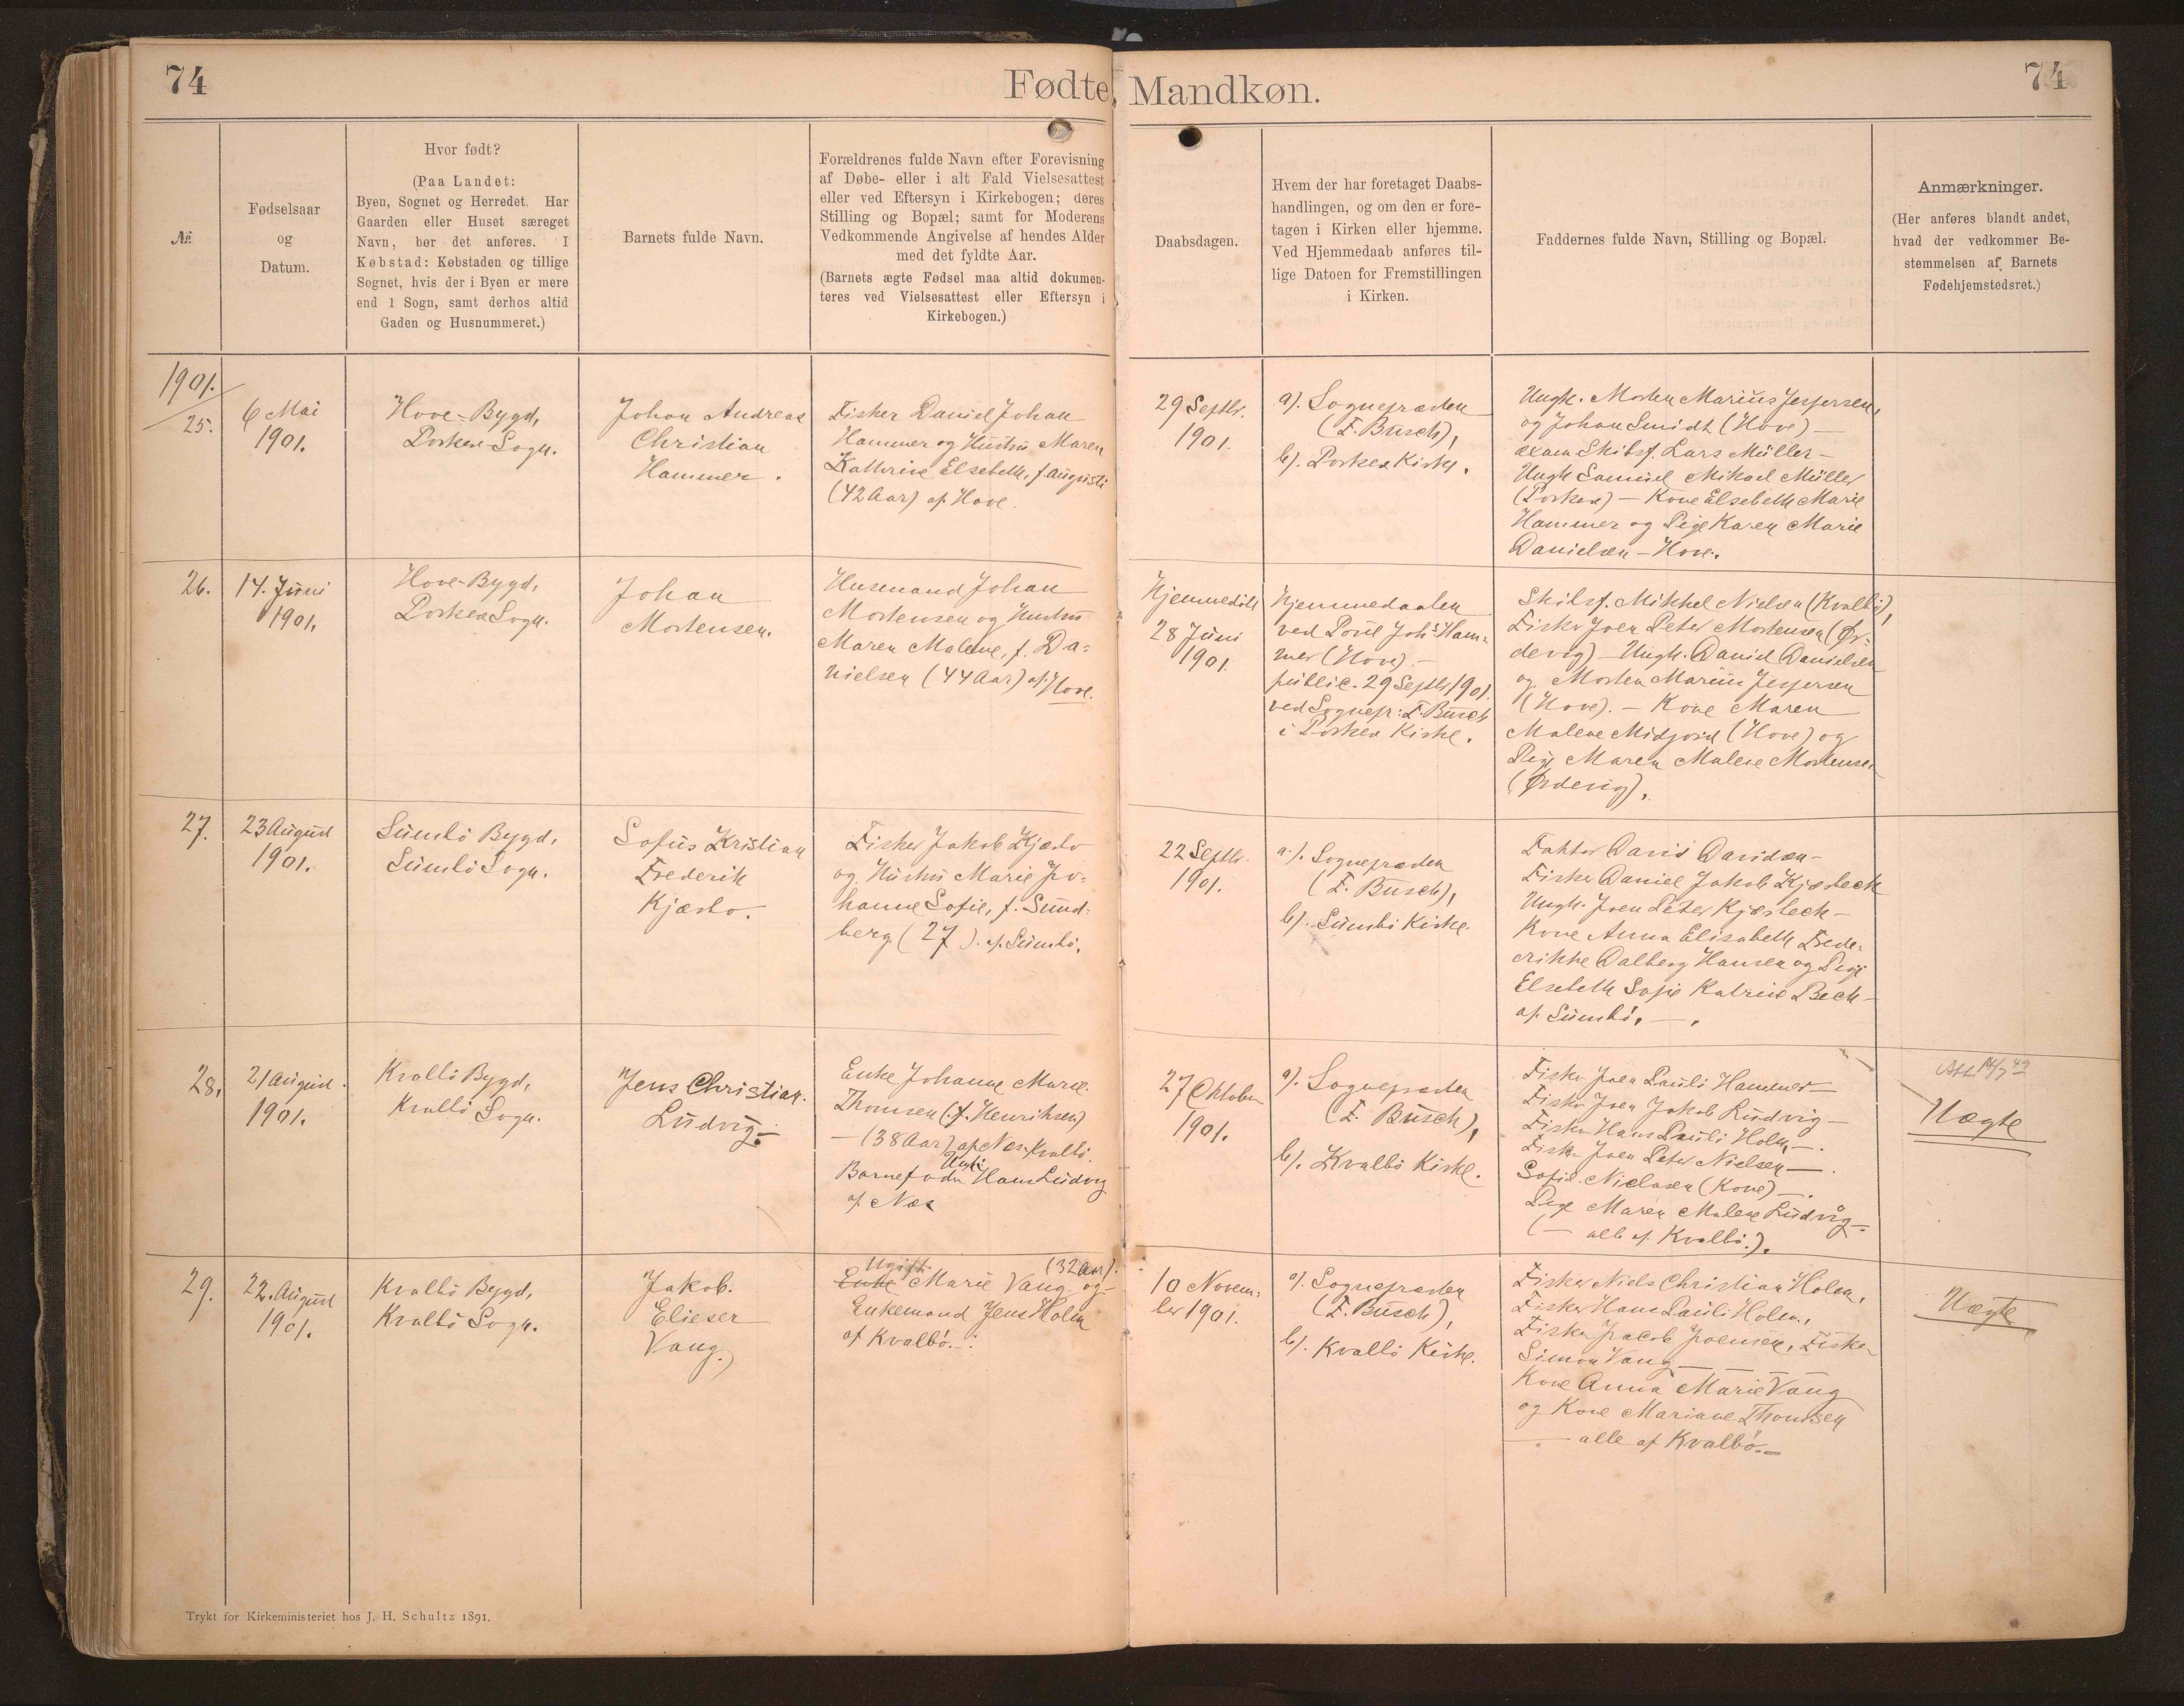 74
Fødte, Mandkøn.
74
№
Fødselsaar
og
Datum.
Hvor født?
(Paa Landet:
Byen, Sognet og Herredet. Har
Gaarden eller Huset særeget
Navn, bør det anføres. I
Købstad: Købstaden og tillige
Sognet, hvis der i Byen er mere
end 1 Sogn, samt derhos altid
Gaden og Husnummeret.)
Barnets fulde Navn.
Forældrenes fulde Navn efter Forevisning
af Døbe- eller i alt Fald Vielsesattest
eller ved Eftersyn i Kirkebogen; deres
Stilling og Bopæl; samt for Moderens
Vedkommende Angivelse af hendes Alder
med det fyldte Aar.
(Barnets ægte Fødsel maa altid dokumen-
teres ved Vielsesattest eller Eftersyn i
Kirkebogen.)
Daabsdagen.
Hvem der har foretaget Daabs-
handlingen, og om den er fore-
tagen i Kirken eller hjemme.
Ved Hjemmedaab anføres til-
lige Datoen for Fremstillingen
i Kirken.
Faddernes fulde Navn, Stilling og Bopæl.
Anmærkninger.
(Her anføres blandt andet,
hvad der vedkommer Be-
stemmelsen af Barnets
Fødehjemstedsret.)
1901.
25.
6 Mai
1901.
Hove-Bygd,
Porkere Sogn.
Johan Andreas
Christian
Hammer.
Fisker Daniel Johan
Hammer og Hustru Maren
Katherine Elsebeth, f. Augusti
(42 Aar) af Hove.
29 Septbr.
1901.
a). Sognepræsten
(F. Busch),
b). Porkere Kirke.
Ungk. Morten Marius Jespersen,
og Johan Smidt (Hove) —
exam Skibsf. Lars Müller —
Ungk Samuel Mikael Müller
(Porkere) — Kone Elsebeth Marie
Hammer og Pige Karen Marie
Danielsen — Hove.
26.
14. Juni
1901.
Hove-Bygd,
Porkere Sogn.
Johan
Mortensen.
Husmand Johan
Mortensen og Hustru
Maren Malene, f. Da-
nielsen (44 Aar) af Hove.
Hjemmedøbt
28 Juni
1901.
Hjemmedaaben
ved Poul Johs Ham-
mer (Hove). —
public. 29 Septbr 1901.
ved Sognepr: F. Busch
i Porkere Kirke.
Skibsf. Mikkel Nielsen (Kvalbø),
Fisker Joen Peter Mortensen (Ør-
devig) — Ungk. Daniel Danielsen
og Morten Marius Jespersen
(Hove). — Kone Maren
Malene Midjord (Hove) og
Pige Maren Malene Mortensen
(Ørdevig).
27.
23 August
1901.
Sumbø Bygd,
Sumbø Sogn.
Sofus Kristian
Frederik
Kjærbo.
Fisker Jakob Kjærbo
og Hustru Marie Jo-
hanne Sofie, f. Sund-
berg (27). af Sumbø.
22 Septbr.
1901.
a). Sognepræsten
(F. Busch),
b). Sumbø Kirke.
Faktor David Davidsen —
Fisker Daniel Jakob Kjærbech
Ungk. Joen Peter Kjærbech —
Kone Anna Elisabeth Frede-
rikke Dalberg Hansen og Pige
Elsebeth Sofie Katrine Bech —
af Sumbø. —.
28.
21 August.
1901.
Kvalbø Bygd,
Kvalbø Sogn.
Jens Christian
Ludvig.
Enke Johanne Marie
Thomsen (f. Henriksen)
— (38 Aar) af Næs-Kvalbø.
Barnefader Ungk. Hans Ludvig
af Næs
27 Oktober
1901.
a). Sognepræsten
(F. Busch),
b). Kvalbø Kirke.
Fisker Joen Pauli Hammer —
Fisker Joen Jakob Ludvig —
Fisker Hans Pauli Holm, —.
Fisker Joen Peter Nielsen —.
Sofie Niclasen (Kone) —.
Pige Maren Malene Ludvig —.
(— alle af Kvalbø.).
Uægte
29.
22. August
1901.
Kvalbø Bygd,
Kvalbø Sogn.
Jakob
Elieser
Vang.
Ugift (32 Aar).
Enke Marie Vang og
Enkemand Jens Holm
af Kvalbø.
10 Novem-
ber 1901.
a). Sognepræsten
(F. Busch),
b). Kvalbø Kirke.
Fisker Niels Christian Holm,
Fisker Hans Pauli Holm,
Fisker Jacob Joensen, Fisker
Simon Vang —
Kone Anna Marie Vang
og Kone Mariane Thomsen
— alle af Kvalbø. —
Uægte
Trykt for Kirkeministeriet hos J. H. Schultz 1891.